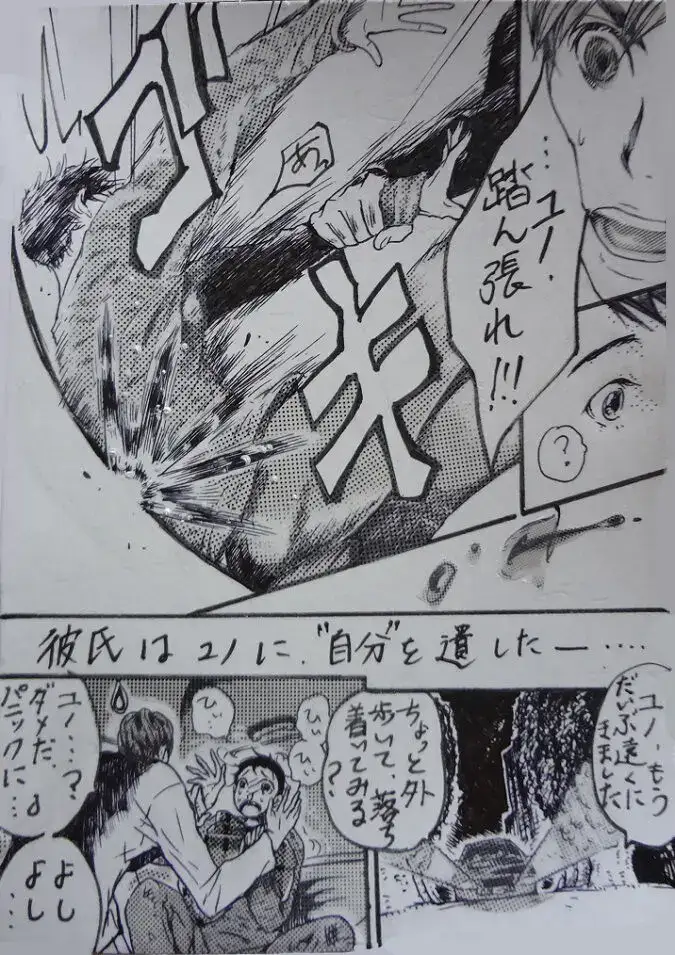 …ユノ、
踏ん張れ!!!
あっ
?
彼氏はユノに、"自分"を遺した—‥‥
ユノ、もう
だいぶ遠くに
きました
ちょっと外
歩いて、落ち
着いてみる
?
ひぃ
ひぃ
ひぃ
ユノ…?
ダメだ、
パニックに…
よし
よし
…